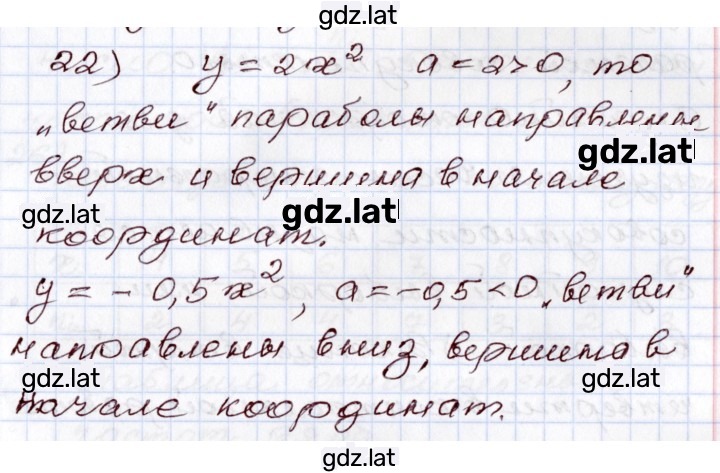 gdz.lat
22) y = 2x² a = 2 > 0, то
„ветви“ параболы направлены
gdz.lat
gdz.lat
вверх и вершина в начале
gdz.lat
gdz.lat
gdz.lat
координат.
y = - 0,5x², a = -0,5 < 0 „ветви“
направлены вниз, вершина в
gdz.lat
gdz.lat
начале координат.
gdz.lat